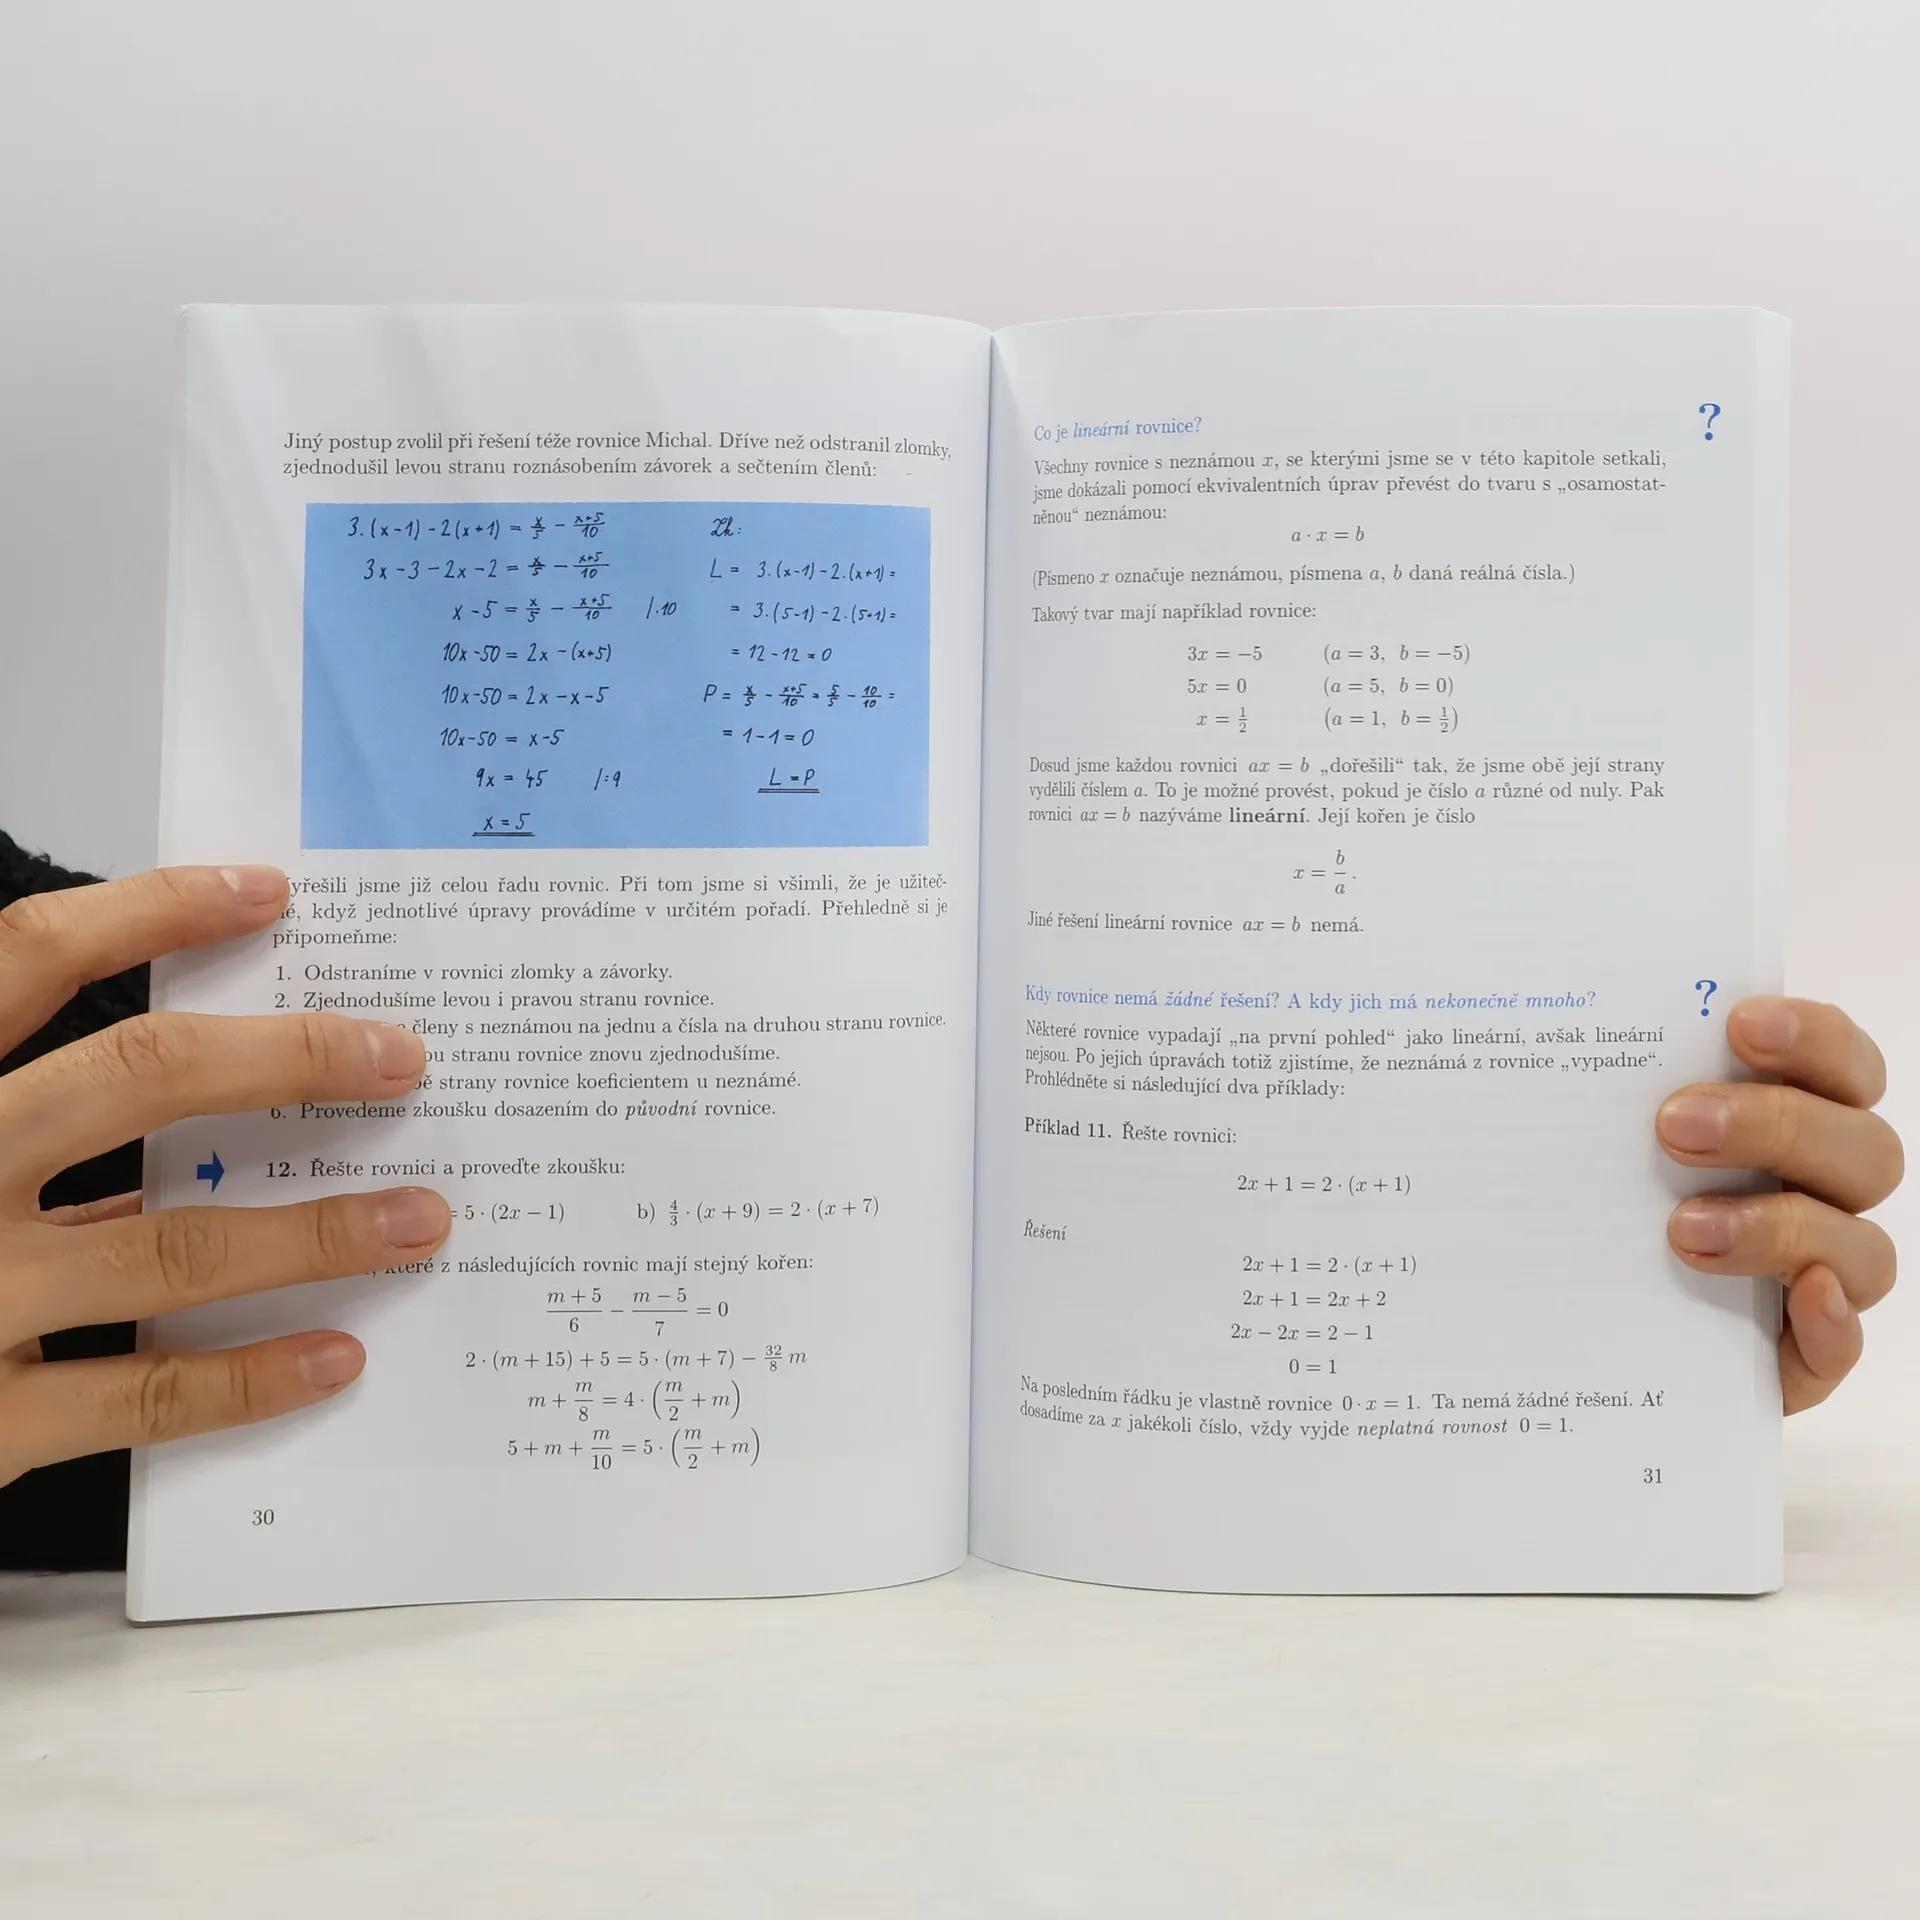 Jiný postup zvolil při řešení téže rovnice Michal. Dříve než odstranil zlomky,
zjednodušil levou stranu roznásobením závorek a sečtením členů:
3.(x-1) - 2(x+1) = x/5 - (x+5)/10
3x - 3 - 2x - 2 = x/5 - (x+5)/10
x - 5 = x/5 - (x+5)/10 /.10
10x - 50 = 2x - (x+5)
10x - 50 = 2x - x - 5
10x - 50 = x - 5
9x = 45 /:9
x = 5
Zk:
L = 3.(x-1) - 2.(x+1) =
= 3.(5-1) - 2.(5+1) =
= 12 - 12 = 0
P = x/5 - (x+5)/10 = 5/5 - 10/10 =
= 1 - 1 = 0
L = P
yřešili jsme již celou řadu rovnic. Při tom jsme si všimli, že je užiteč-
é, když jednotlivé úpravy provádíme v určitém pořadí. Přehledně si je
připomeňme:
1. Odstraníme v rovnici zlomky a závorky.
2. Zjednodušíme levou i pravou stranu rovnice.
členy s neznámou na jednu a čísla na druhou stranu rovnice.
ou stranu rovnice znovu zjednodušíme.
ě strany rovnice koeficientem u neznámé.
6. Provedeme zkoušku dosazením do původní rovnice.
12. Řešte rovnici a proveďte zkoušku:
= 5 · (2x − 1) b) 4/3 · (x + 9) = 2 · (x + 7)
které z následujících rovnic mají stejný kořen:
(m + 5)/6 − (m − 5)/7 = 0
2 · (m + 15) + 5 = 5 · (m + 7) − 32/8 m
m + m/8 = 4 · (m/2 + m)
5 + m + m/10 = 5 · (m/2 + m)
30
Co je lineární rovnice?
?
Všechny rovnice s neznámou x, se kterými jsme se v této kapitole setkali,
jsme dokázali pomocí ekvivalentních úprav převést do tvaru s „osamostat-
něnou“ neznámou:
a · x = b
(Písmeno x označuje neznámou, písmena a, b daná reálná čísla.)
Takový tvar mají například rovnice:
3x = −5 (a = 3, b = −5)
5x = 0 (a = 5, b = 0)
x = 1/2 (a = 1, b = 1/2)
Dosud jsme každou rovnici ax = b „dořešili“ tak, že jsme obě její strany
vydělili číslem a. To je možné provést, pokud je číslo a různé od nuly. Pak
rovnici ax = b nazýváme lineární. Její kořen je číslo
x = b/a .
Jiné řešení lineární rovnice ax = b nemá.
Kdy rovnice nemá žádné řešení? A kdy jich má nekonečně mnoho?
?
Některé rovnice vypadají „na první pohled“ jako lineární, avšak lineární
nejsou. Po jejich úpravách totiž zjistíme, že neznámá z rovnice „vypadne“.
Prohlédněte si následující dva příklady:
Příklad 11. Řešte rovnici:
2x + 1 = 2 · (x + 1)
Řešení
2x + 1 = 2 · (x + 1)
2x + 1 = 2x + 2
2x − 2x = 2 − 1
0 = 1
Na posledním řádku je vlastně rovnice 0 · x = 1. Ta nemá žádné řešení. Ať
dosadíme za x jakékoli číslo, vždy vyjde neplatná rovnost 0 = 1.
31